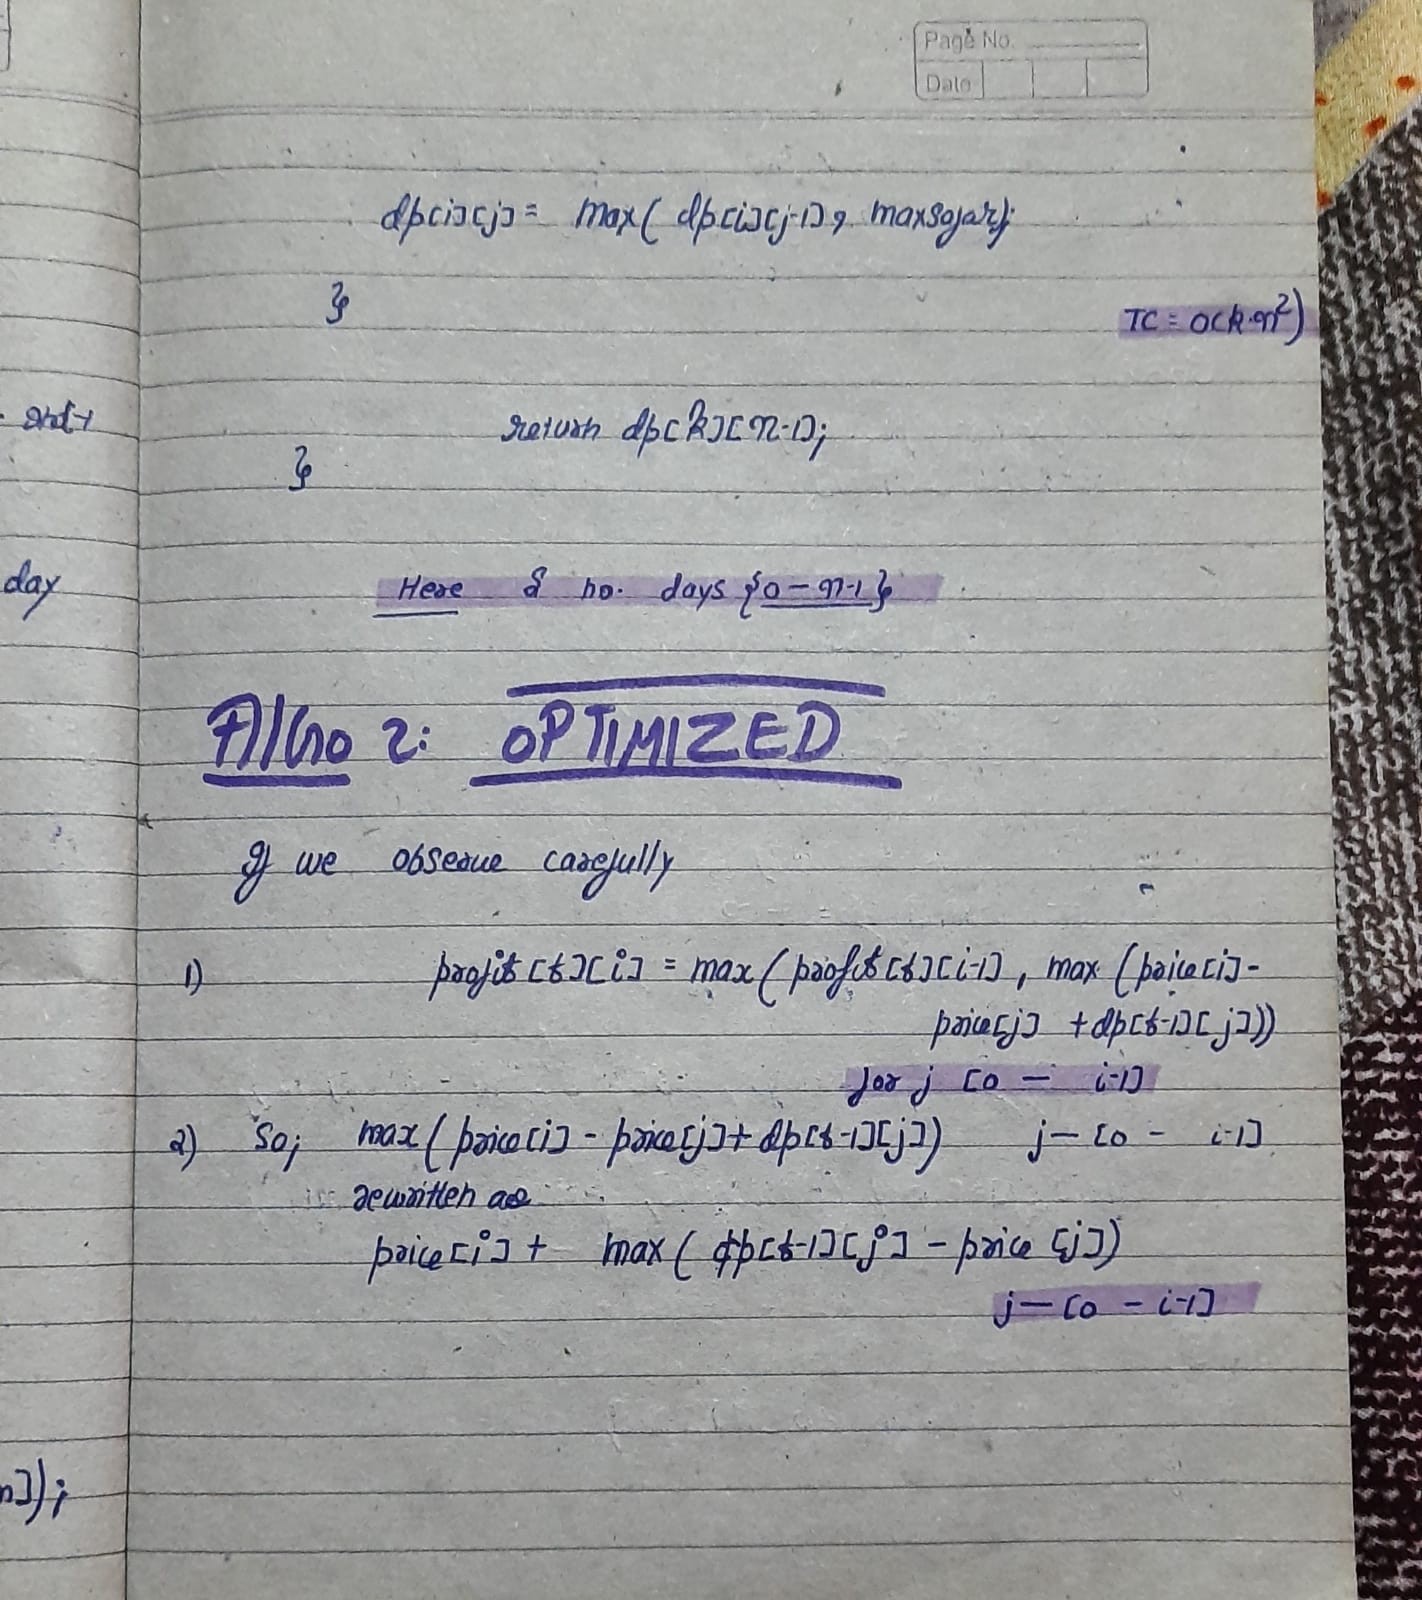 Page No.
Date
dp[i][j] = max( dp[i][j-1], maxsofar);
}
TC = O(k.n²)
return dp[k][n-1];
}
Here & no. days {0 - n-1}
Algo 2: OPTIMIZED
If we observe carefully
1) profit[t][i] = max( profit[t][i-1], max (price[i] -
price[j] + dp[t-1][j]))
for j [0 - i-1]
2) So, max( price[i] - price[j] + dp[t-1][j]) j - [0 - i-1]
rewritten as
price[i] + max( dp[t-1][j] - price [j])
j - [0 - i-1]
day
n]);